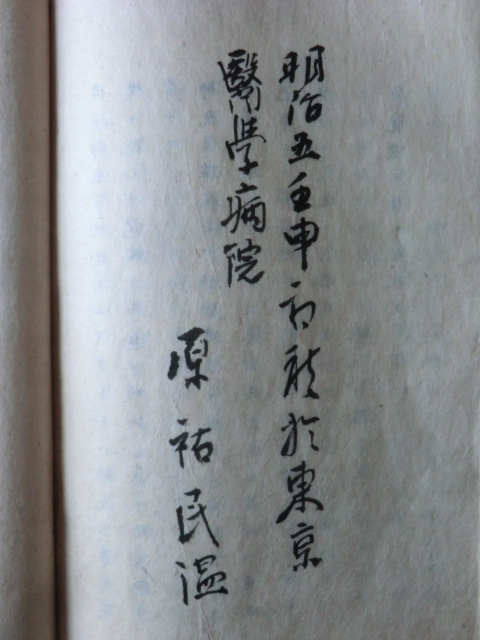 明治五壬申初秋於東京
醫學病院
原祐民温